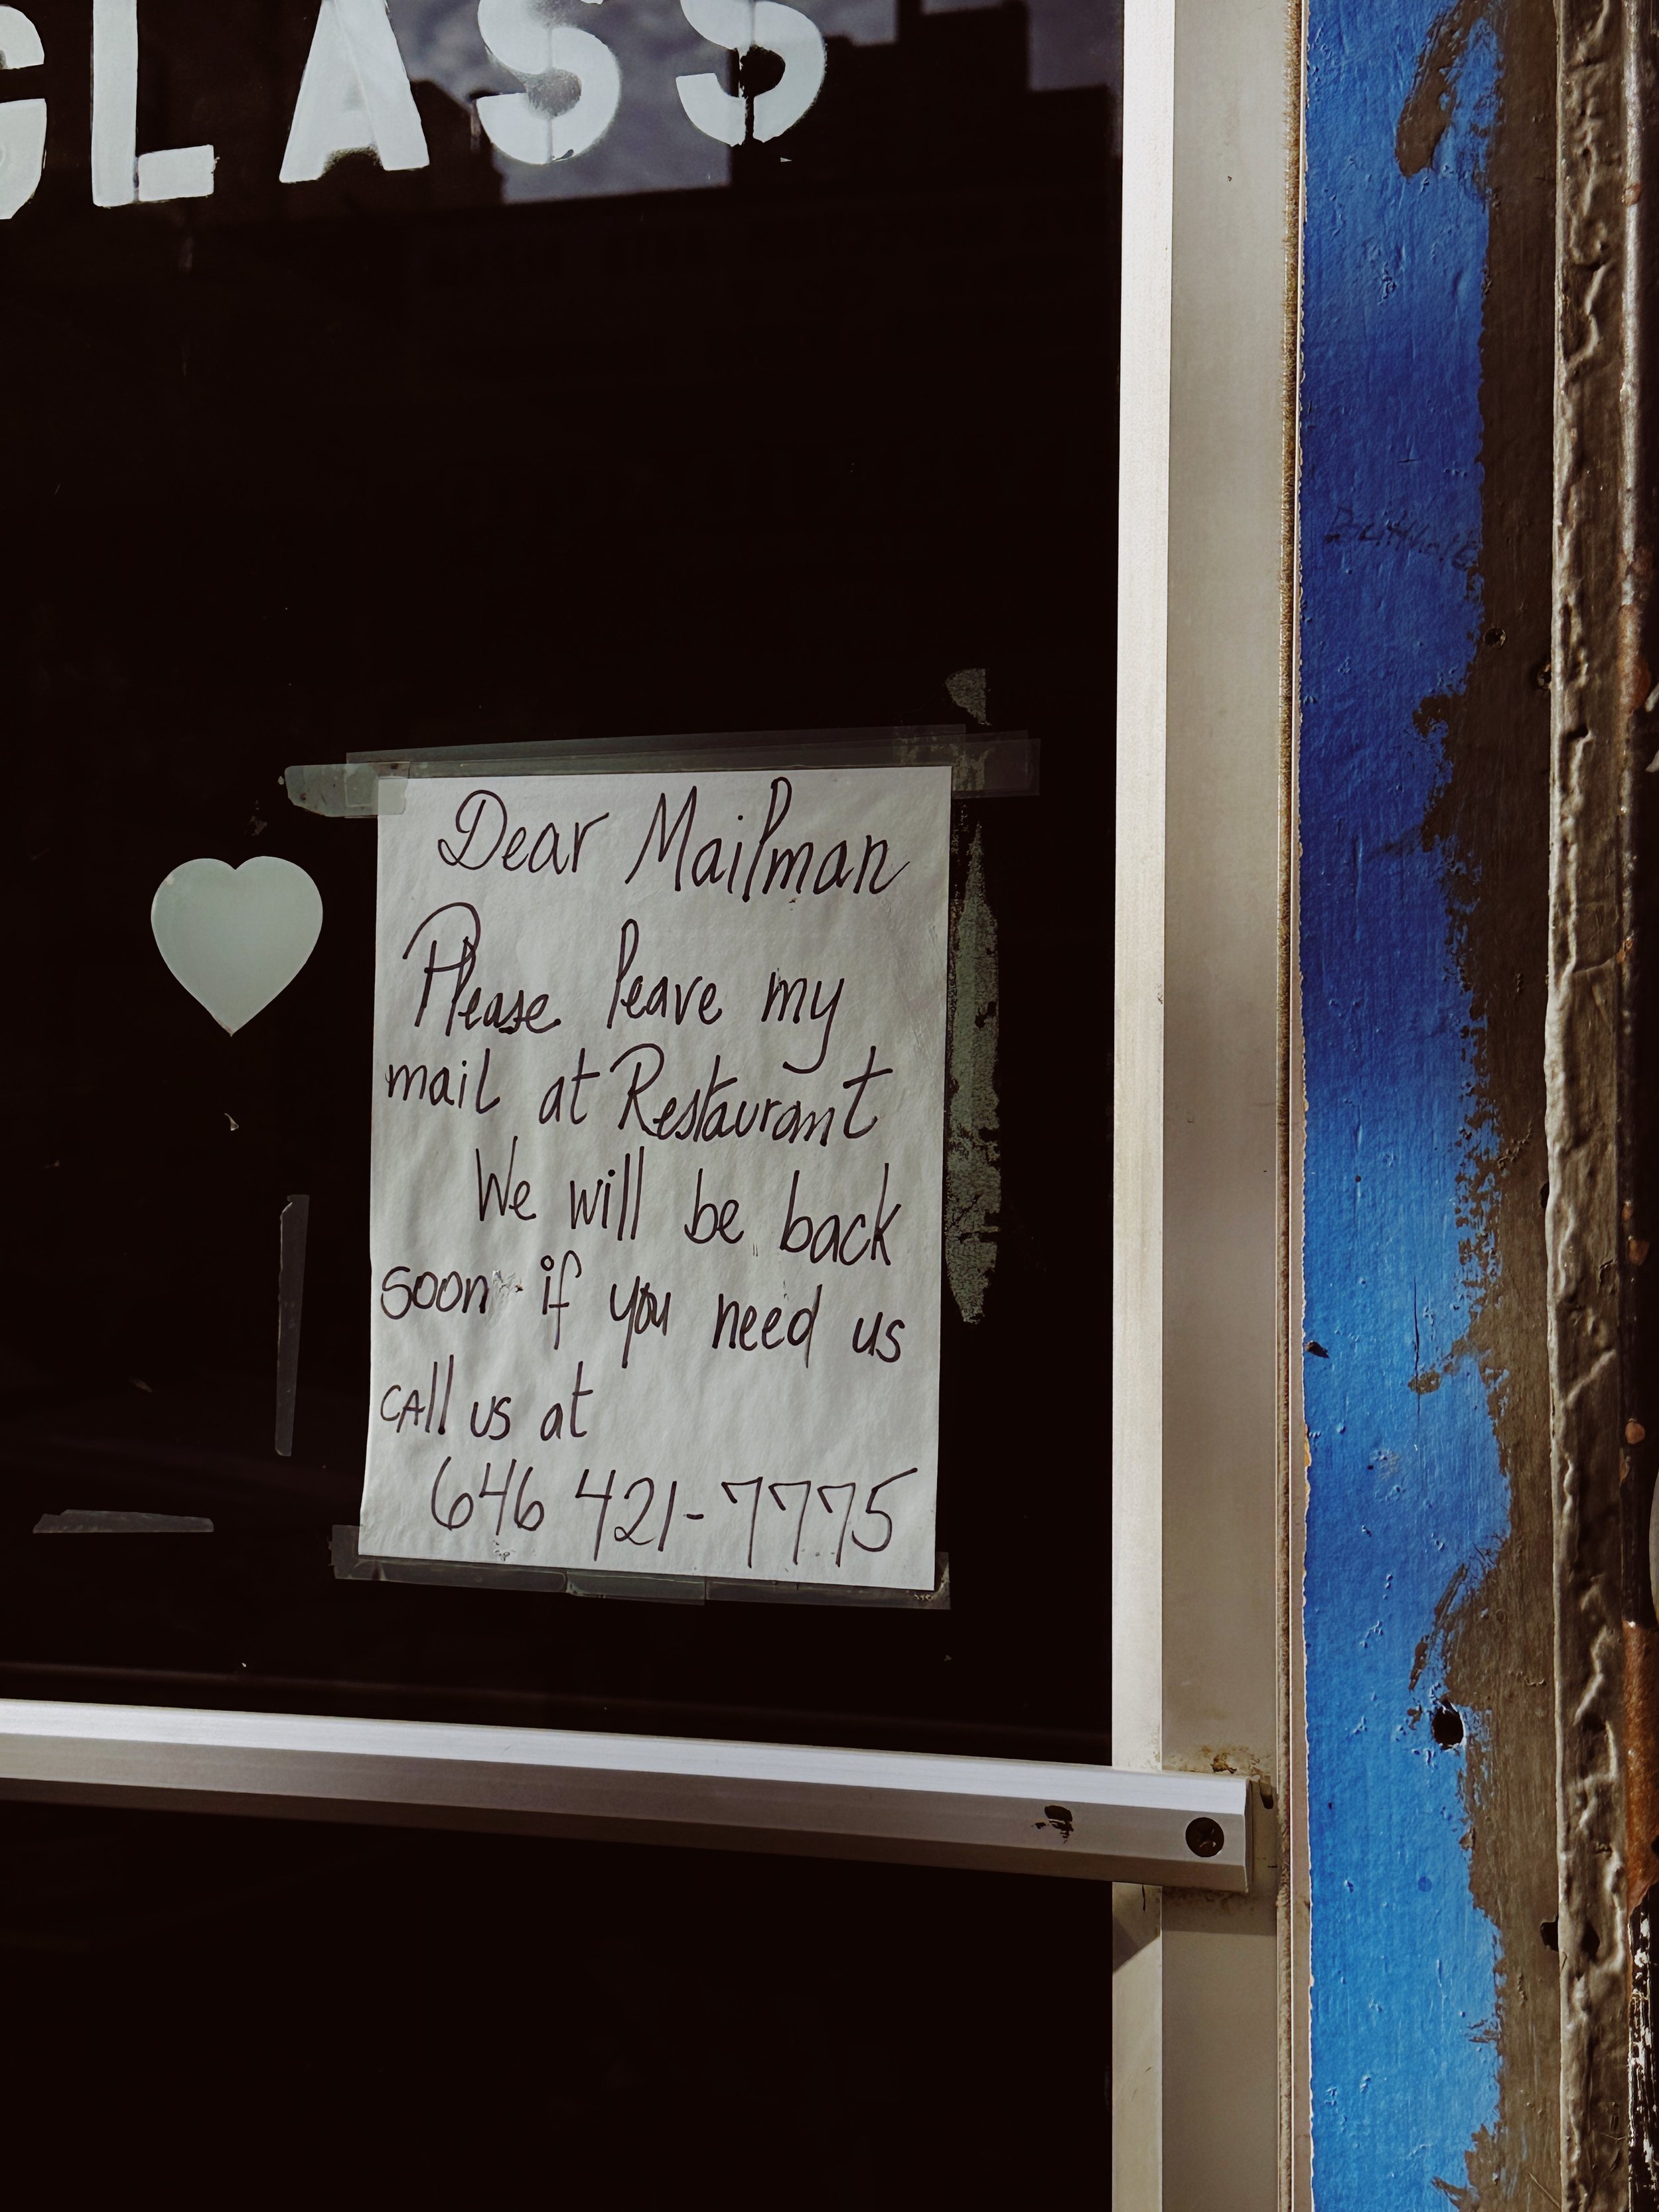 GLASS
Dear Mailman
Please leave my
mail at Restaurant
We will be back
soon if you need us
call us at
646 421-7775